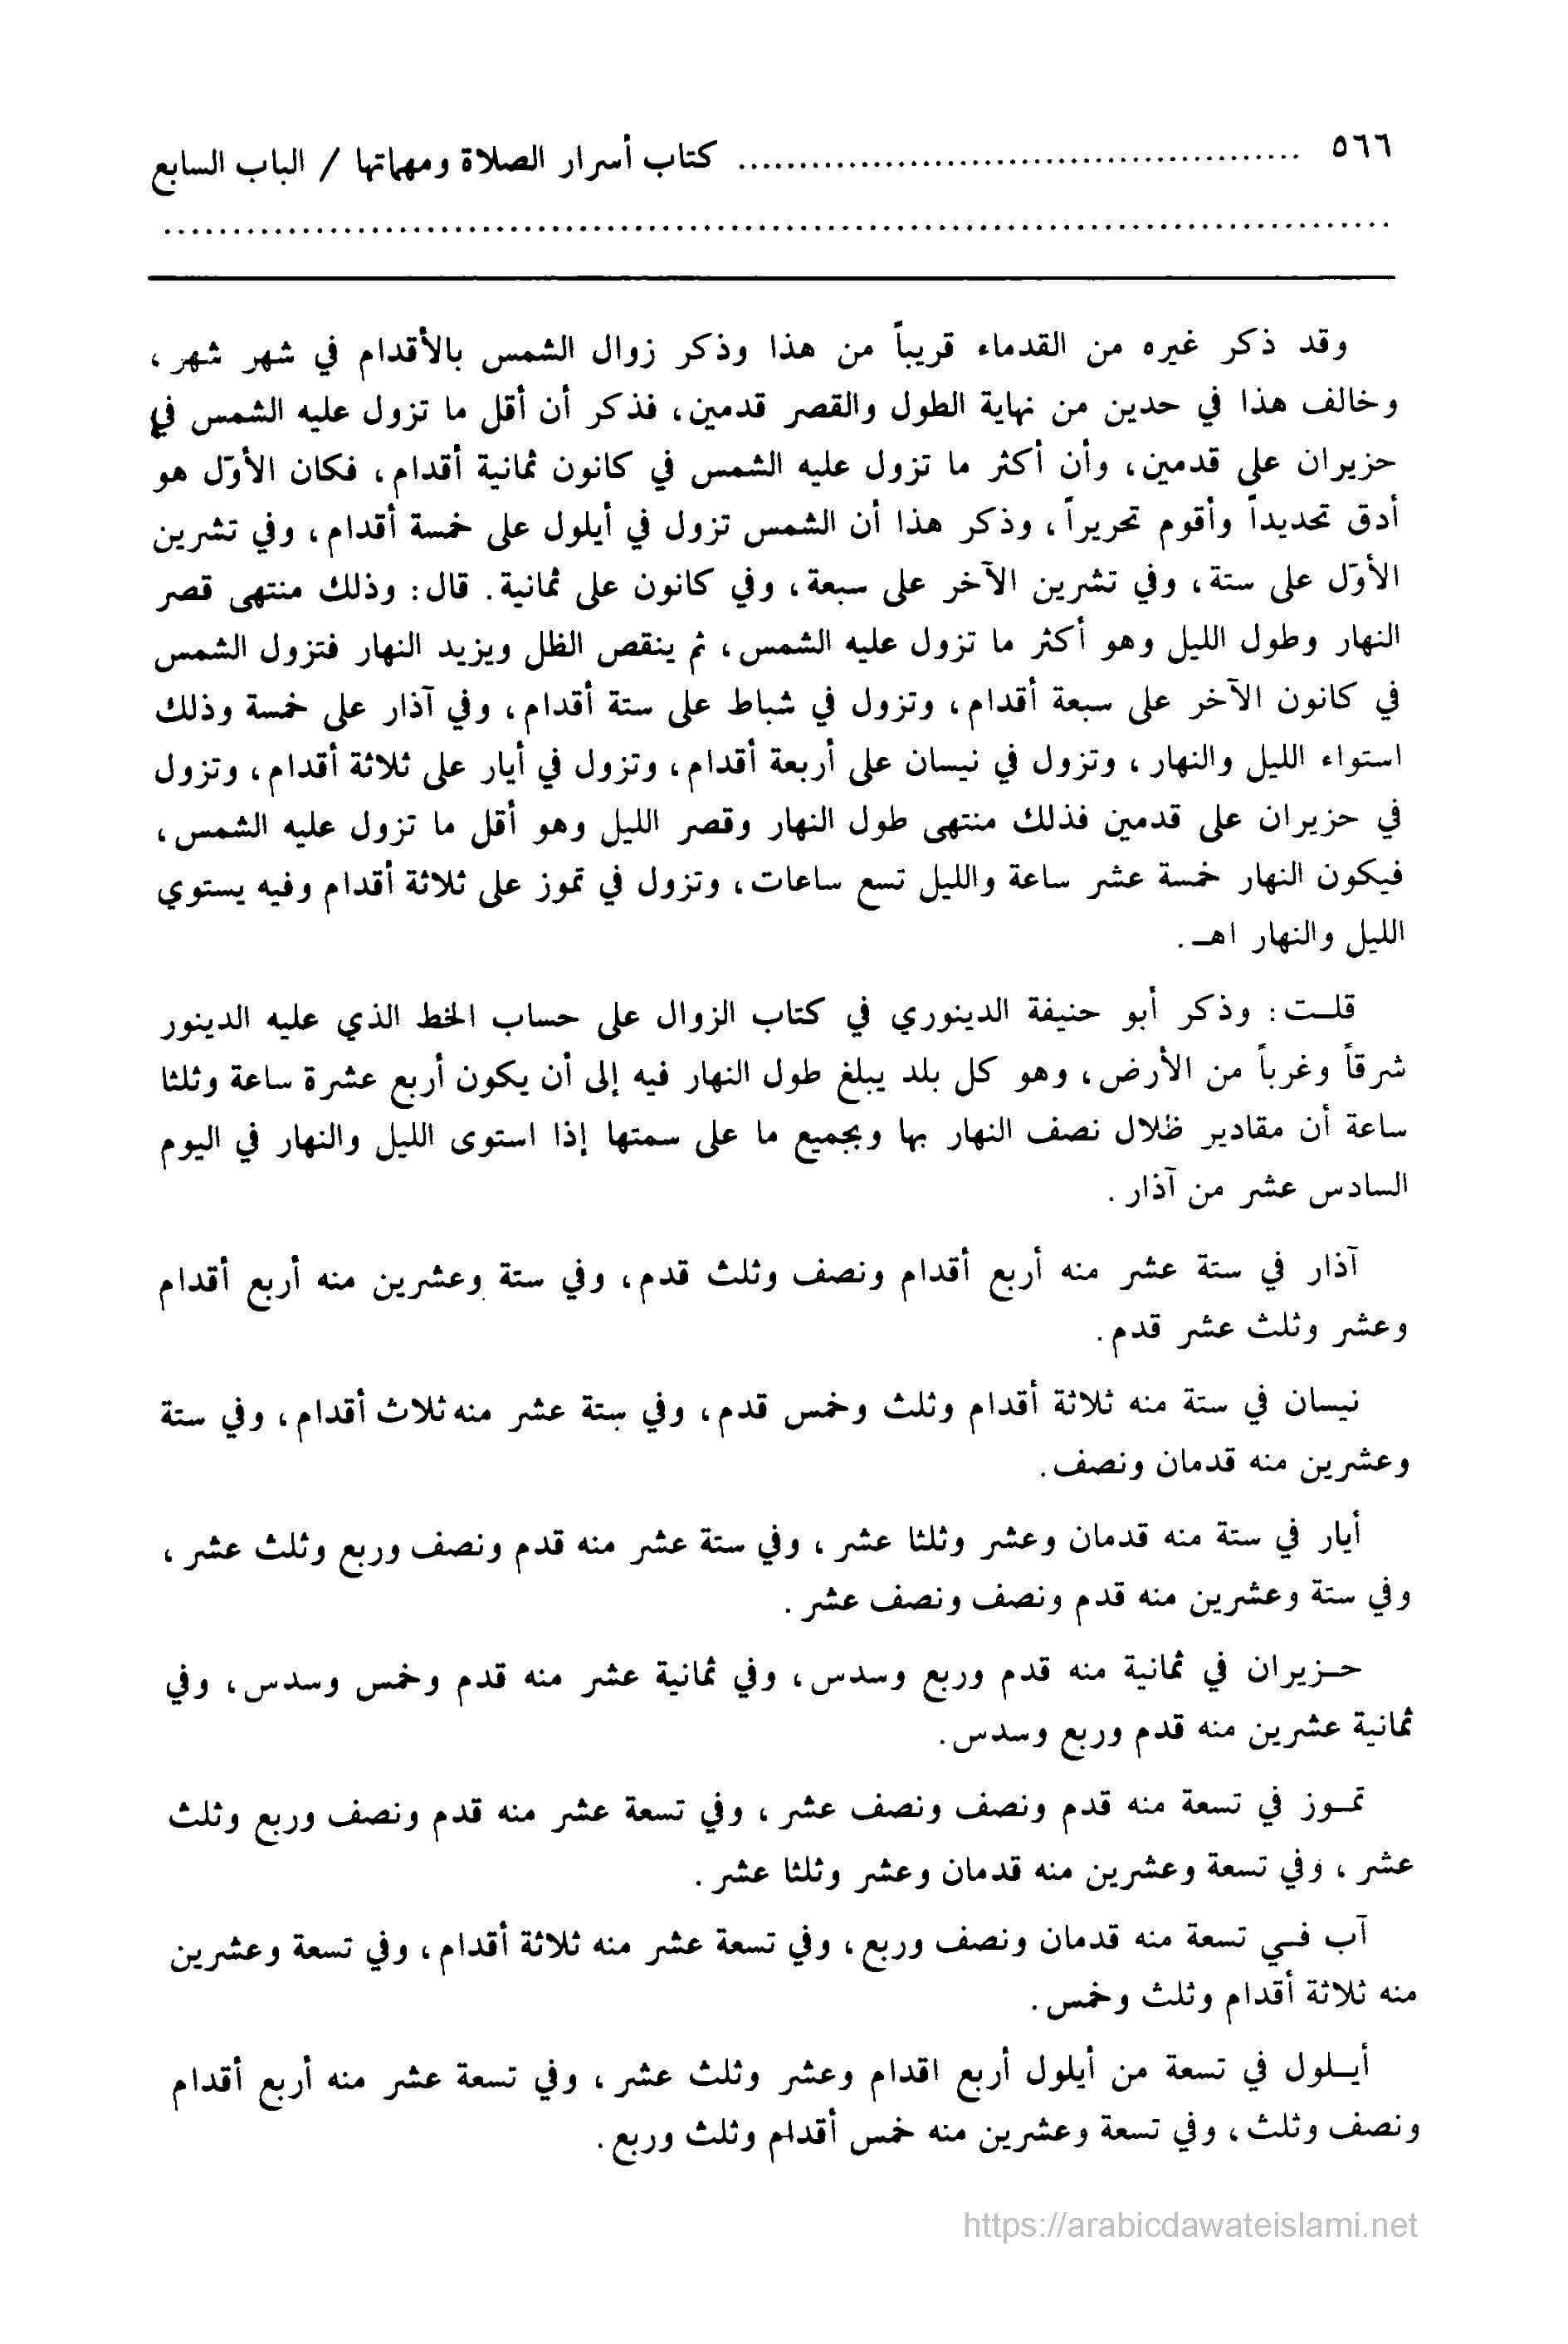 ٥٦٦ ............................................. كتاب أسرار الصلاة ومهماتها / الباب السابع
..........................................................................................
وقد ذكر غيره من القدماء قريباً من هذا وذكر زوال الشمس بالأقدام في شهر شهر،
وخالف هذا في حدين من نهاية الطول والقصر قدمين، فذكر أن أقل ما تزول عليه الشمس في
حزيران على قدمين، وأن أكثر ما تزول عليه الشمس في كانون ثمانية أقدام، فكان الأوّل هو
أدق تحديداً وأقوم تحريراً، وذكر هذا أن الشمس تزول في أيلول على خمسة أقدام، وفي تشرين
الأوّل على ستة، وفي تشرين الآخر على سبعة، وفي كانون على ثمانية. قال: وذلك منتهى قصر
النهار وطول الليل وهو أكثر ما تزول عليه الشمس، ثم ينقص الظل ويزيد النهار فتزول الشمس
في كانون الآخر على سبعة أقدام، وتزول في شباط على ستة أقدام، وفي آذار على خمسة وذلك
استواء الليل والنهار، وتزول في نيسان على أربعة أقدام، وتزول في أيار على ثلاثة أقدام، وتزول
في حزيران على قدمين فذلك منتهى طول النهار وقصر الليل وهو أقل ما تزول عليه الشمس،
فيكون النهار خمسة عشر ساعة والليل تسع ساعات، وتزول في تموز على ثلاثة أقدام وفيه يستوي
الليل والنهار اهـ.
قلت: وذكر أبو حنيفة الدينوري في كتاب الزوال على حساب الخط الذي عليه الدينور
شرقاً وغرباً من الأرض، وهو كل بلد يبلغ طول النهار فيه إلى أن يكون أربع عشرة ساعة وثلثا
ساعة أن مقادير ظلال نصف النهار بها وبجميع ما على سمتها إذا استوى الليل والنهار في اليوم
السادس عشر من آذار.
آذار في ستة عشر منه أربع أقدام ونصف وثلث قدم، وفي ستة وعشرين منه أربع أقدام
وعشر وثلث عشر قدم.
نيسان في ستة منه ثلاثة أقدام وثلث وخمس قدم، وفي ستة عشر منه ثلاث أقدام، وفي ستة
وعشرين منه قدمان ونصف.
أيار في ستة منه قدمان وعشر وثلثا عشر، وفي ستة عشر منه قدم ونصف وربع وثلث عشر،
وفي ستة وعشرين منه قدم ونصف ونصف عشر.
حـزيران في ثمانية منه قدم وربع وسدس، وفي ثمانية عشر منه قدم وخمس وسدس، وفي
ثمانية عشرين منه قدم وربع وسدس.
تمـوز في تسعة منه قدم ونصف ونصف عشر، وفي تسعة عشر منه قدم ونصف وربع وثلث
عشر، وفي تسعة وعشرين منه قدمان وعشر وثلثا عشر.
آب فـي تسعة منه قدمان ونصف وربع، وفي تسعة عشر منه ثلاثة أقدام، وفي تسعة وعشرين
منه ثلاثة أقدام وثلث وخمس.
أيـلول في تسعة من أيلول أربع اقدام وعشر وثلث عشر، وفي تسعة عشر منه أربع أقدام
ونصف وثلث، وفي تسعة وعشرين منه خمس أقدام وثلث وربع.
https://arabicdawateislami.net